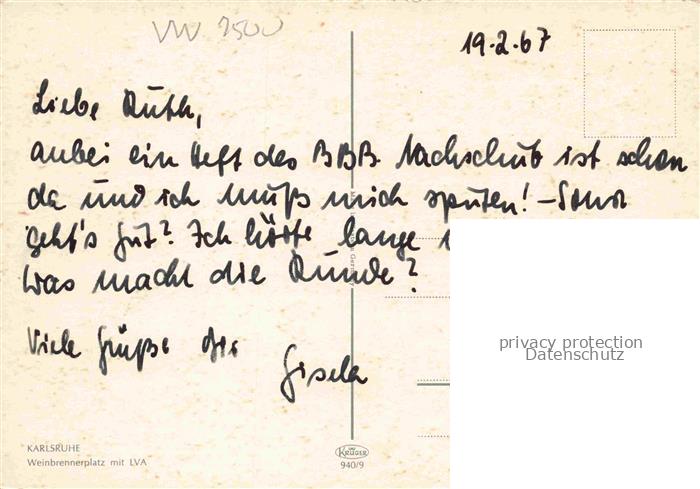 VW 7500
19.2.67
Liebe Ruth,
anbei ein Heft des BBB. Nachschub ist schon
da und ich muß mich sputen! – Sonst
geht's gut? Ich hörte lange
Was macht die Runde?
Viele Grüße Dir
Gisela
privacy protection
Datenschutz
KARLSRUHE
Weinbrennerplatz mit LVA
KRÜGER
940/9